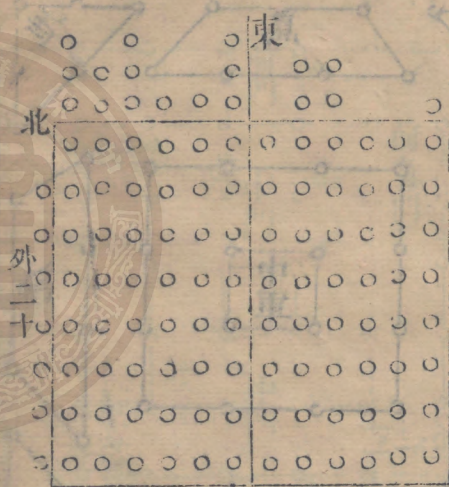 東
北
外二十